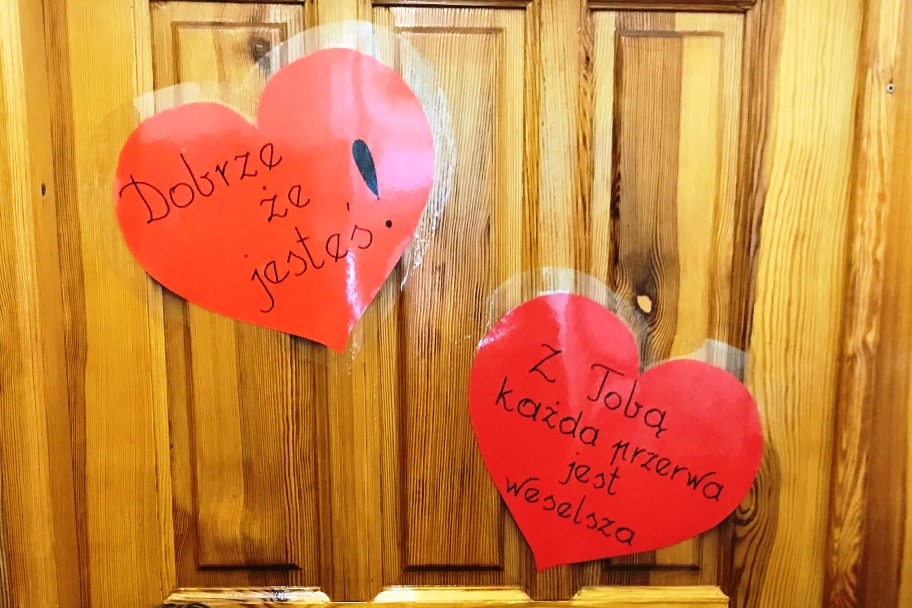 Dobrze
że
jesteś!
Z Tobą
każda przerwa
jest
weselsza